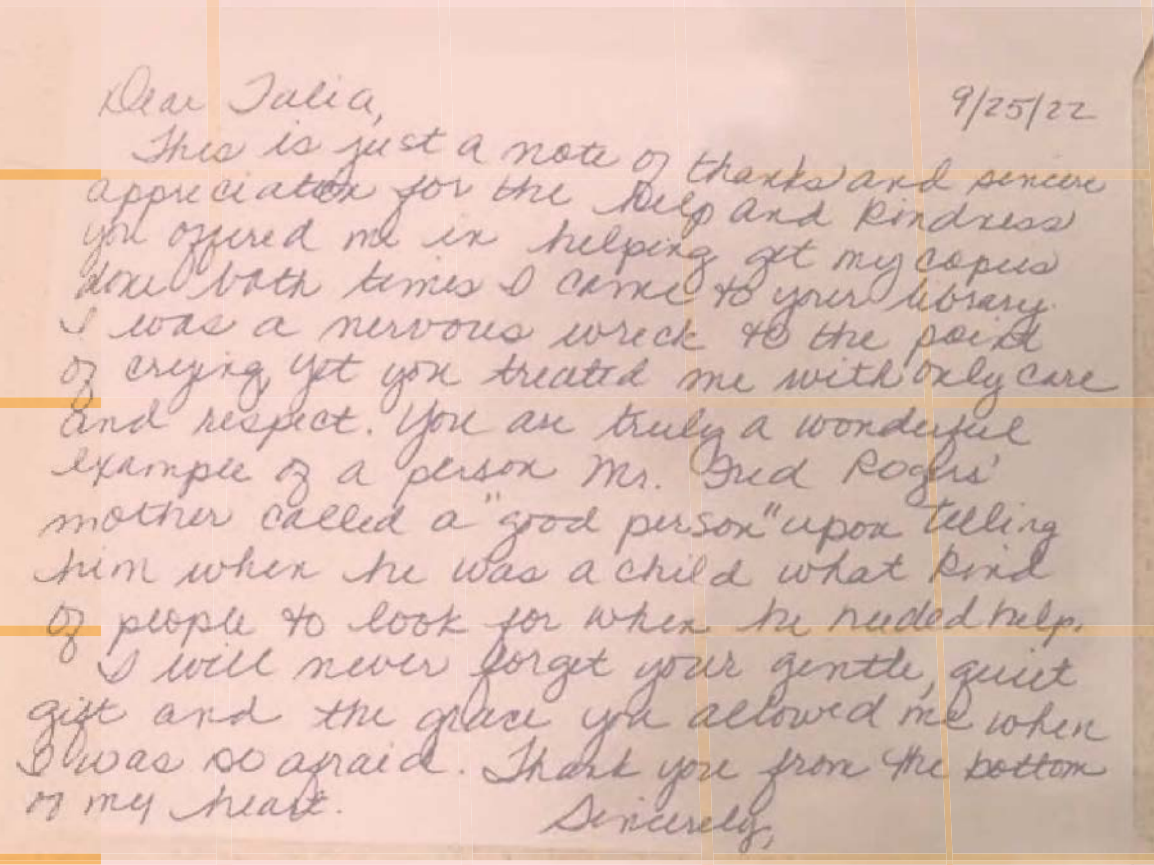 Dear Talia,
9/25/22
This is just a note of thanks and sincere
appreciation for the help and kindness
you offered me in helping get my copies
done both times I came to your library.
I was a nervous wreck to the point
of crying, yet you treated me with only care
and respect. You are truly a wonderful
example of a person Mr. Fred Rogers'
mother called a "good person" upon telling
him when he was a child what kind
of people to look for when he needed help.
I will never forget your gentle, quiet
gift and the grace you allowed me when
I was so afraid. Thank you from the bottom
of my heart.
Sincerely,